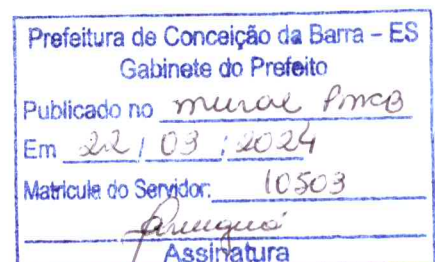 Prefeitura de Conceição da Barra – ES
Gabinete do Prefeito
Publicado no mural PMCB
Em 22 / 03 / 2024
Matricula do Servidor: 10503
Assinatura